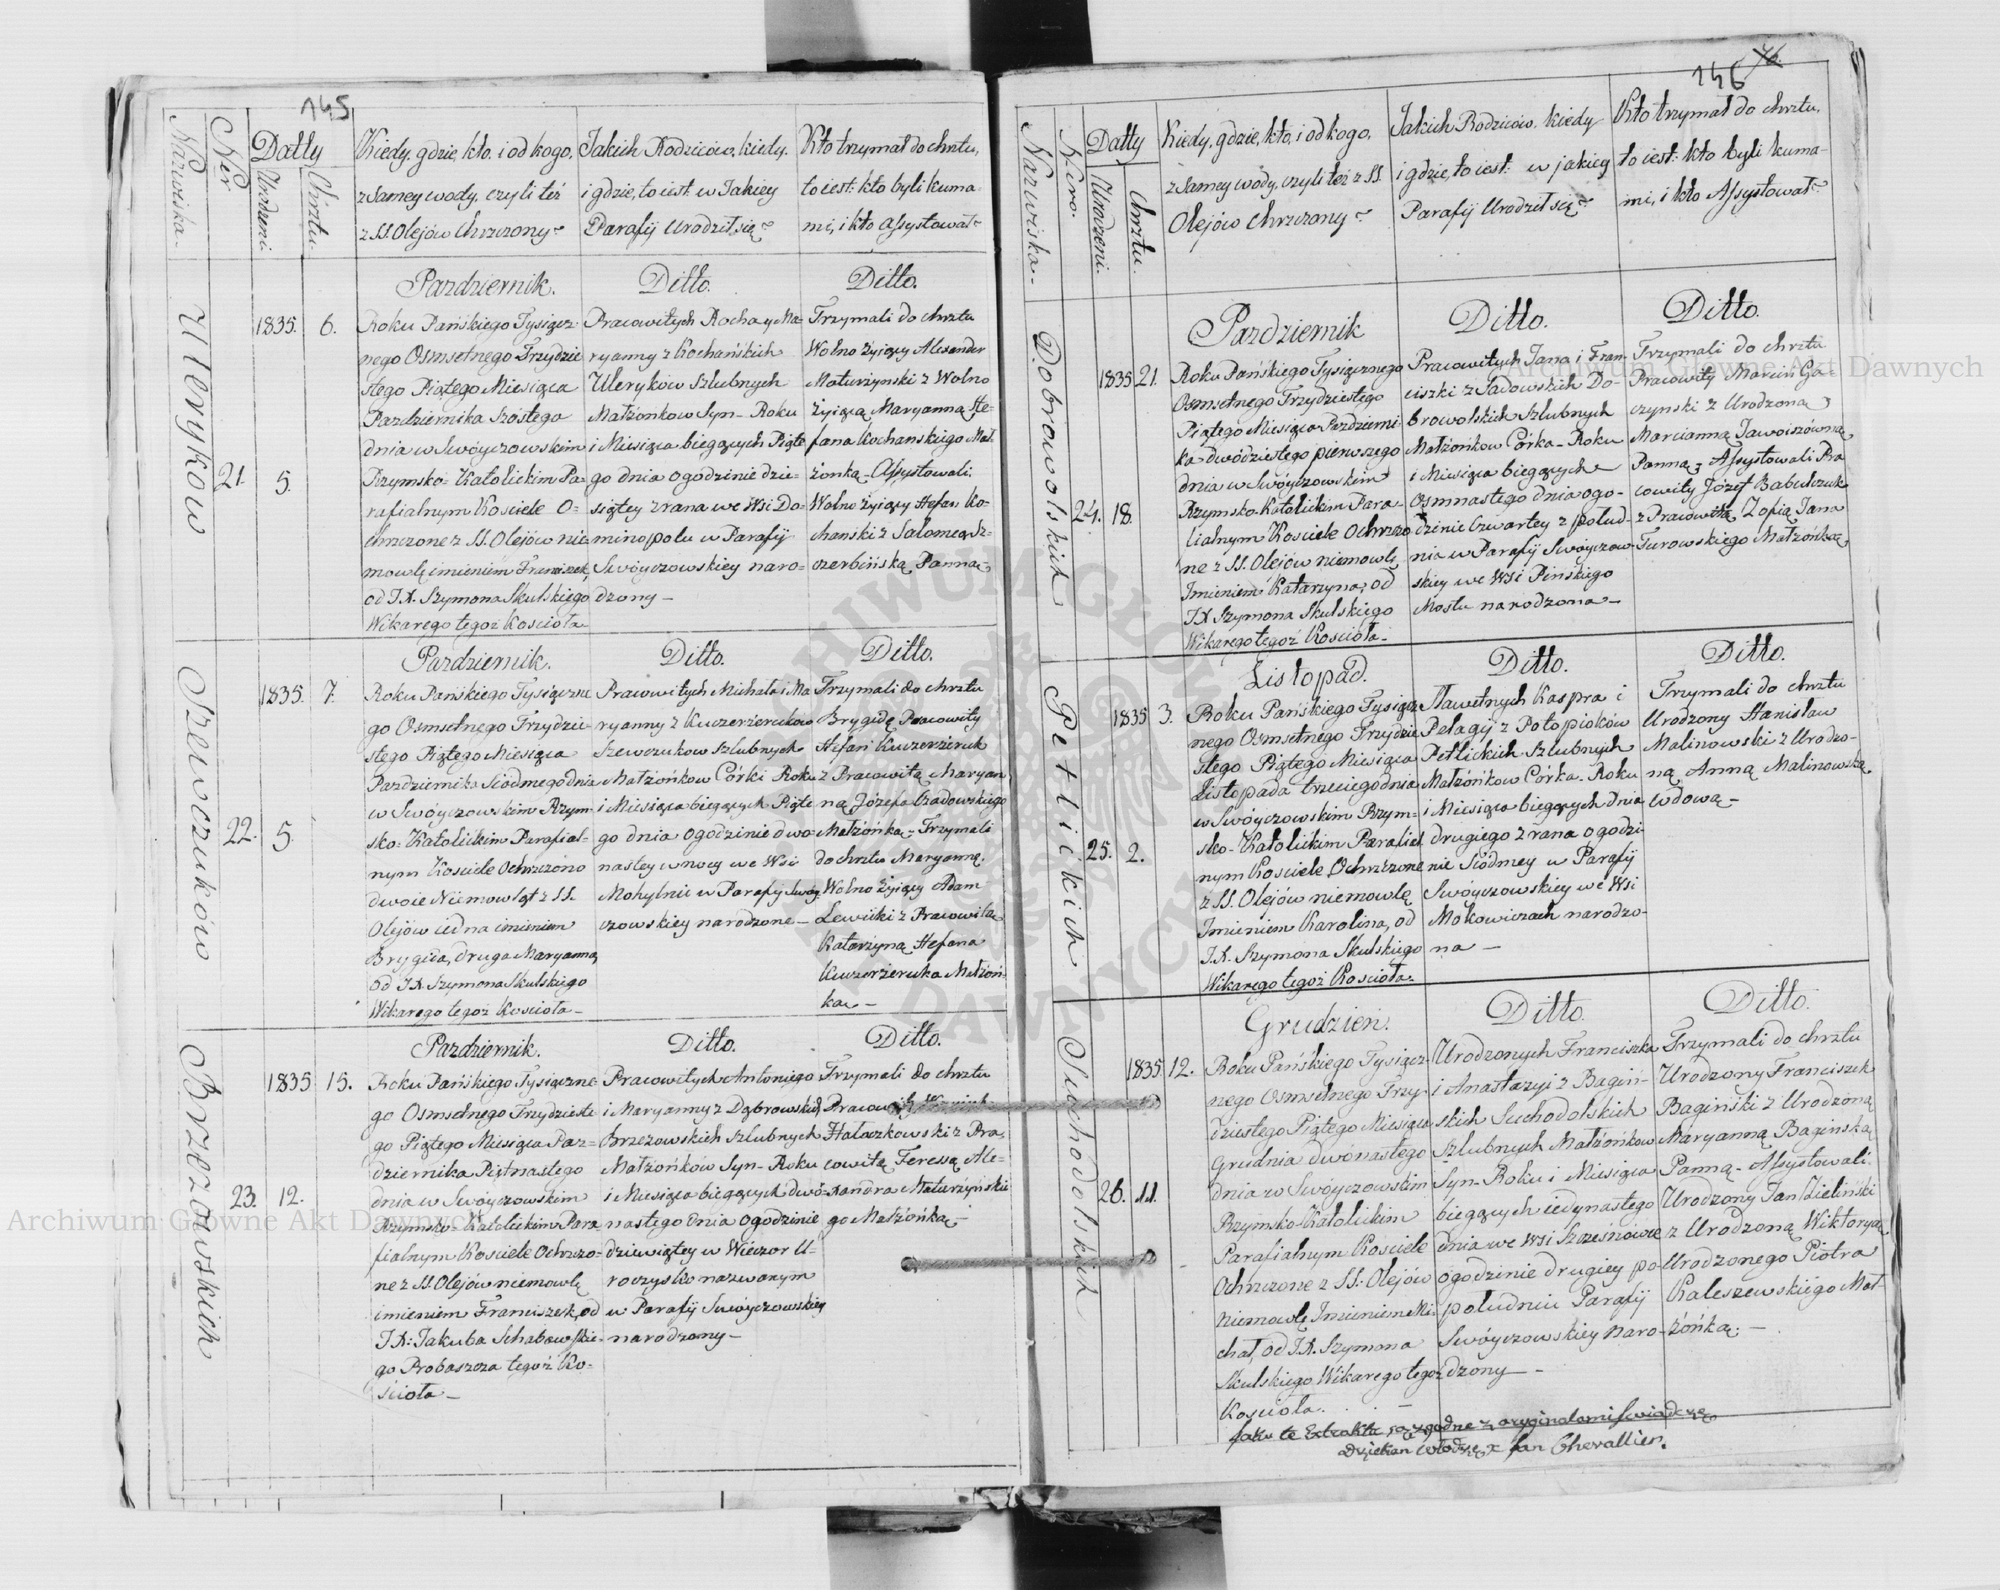 145
Nazwiska.
Ner
Datty
Urodzeni.
Chrztu.
Kiedy, gdzie, kto, i od kogo,
z Samey wody, czyli też
z SS. Olejów Chrzczony?
Jakich Rodziców, kiedy,
i gdzie, to iest: w Jakiey
Parafij Urodził się?
Kto trzymał do chrztu,
to iest: kto byli kuma-
mi, i kto Assystował?
Ulerykow
21.
1835.
5.
6.
Pazdziernik.
Roku Pańskiego Tysiącz
nego Osmsetnego Trzydzie
stego Piątego Miesiąca
Pazdziernika Szóstego
dnia w Swóyczowskim
Rzymsko-Katolickim Pa-
rafialnym Kosciele O-
chrzczone z SS. Olejów nie
mowlę imieniem Franciszek,
od J.X. Szymona Skulskiego
Wikarego tegoż Kościoła
Ditto.
Pracowitych Rocha y Ma-
ryanny z Kochańskich
Uleryków Szlubnych
Małżonkow Syn- Roku
i Miesiąca bieżących Piąte
go dnia o godzinie dzie-
siątey z rana we Wsi Do-
minopolu w Parafij
Swóyczowskiey naro-
dzony-
Ditto.
Trzymali do chrztu
Wolno żyiący Alexander
Maturzynski z Wolno
żyiącą Maryanną Ste-
fana Kochanskiego Mał.
żonką. Assystowali.
Wolno żyiący Stefan Ko-
chanski z Salomeą Sz-
czerbińską Panną
Szewczuków
22.
1835.
5.
7.
Pazdziernik.
Roku Pańskiego Tysiączne
go Osmsetnego Trzydzie-
stego Piątego Miesiąca
Pazdziernika Siódmego dnia
w Swóyczowskim Rzym-
sko-Katolickim Parafial-
nym Kosciele Ochrzczono
dwoie Niemowląt z SS.
Olejów iedna imieniem
Brygida, druga Maryanna,
od J.X. Szymona Skulskiego
Wikarego tegoż Kościoła-
Ditto.
Pracowitych Michała i Ma
ryanny z Kuczerieruków
Szewczukow Szlubnych
Małżonkow Córki Roku
i Miesiąca bieżących Piąte
go dnia o godzinie dwo
nastey w nocy we Wsi
Mohylnie w Parafij Swóy
czowskiey narodzone-
Ditto.
Trzymali do chrztu
Brygidę Pracowity
Stefan Kuczerieruk
z Pracowitą Maryan
ną Józefa Czadowskiego
Małżonką. Trzymali
do chrztu Maryannę.
Wolno żyiący Adam
Lewicki z Pracowitą
Katarzyną Stefana
Kuczerieruka Małżon-
ką-
Brzezowskich
23.
1835
12.
15.
Pazdziernik.
Roku Pańskiego Tysiączne-
go Osmsetnego Trzydzieste
go Piątego Miesiąca Paz-
dziernika Piętnastego
dnia w Swóyczowskim
Rzymsko-Katolickim Para
fialnym Kosciele Ochrzczo-
ne z SS. Olejów niemowlę
imieniem Franciszek, od
J.X: Jakuba Schabowskie-
go Proboszcza tegoż Ko-
ścioła-
Ditto.
Pracowitych Antoniego
i Maryanny z Dąbrowskich
Brzezowskich Szlubnych
Małżonków Syn- Roku
i Miesiąca bieżących dwó-
nastego dnia o godzinie
dziewiątey w Wieczor U-
roczysko nazwanym
w Parafij Swóyczowskiey
narodzony-
Ditto.
Trzymali do chrztu
Hałaczkowski z Pra-
cowitą Teressą Ale-
xandra Maturzyńskie
go Małżonką-
146
Nazwiska.
Nro.
Datty
Urodzeni.
Chrztu.
Kiedy, gdzie, kto, i od kogo,
z Samey wody, czyli też z SS.
Olejów Chrzczony?
Jakich Rodziców, kiedy
i gdzie, to iest: w jakiey
Parafij Urodził się?
Kto trzymał do chrztu,
to iest: kto byli kuma-
mi, i kto Assystował?
Dobrowolskich
24.
1835
18.
21.
Pazdziernik
Roku Pańskiego Tysiącznego
Osmsetnego Trzydziestego
Piątego Miesiąca Pazdzierni-
ka dwódziestego pierwszego
dnia w Swóyczowskim
Rzymsko-Katolickim Para-
fialnym Kosciele Ochrzczo
ne z SS. Olejów niemowlę
Imieniem Katarzyna, od
J.X Szymona Skulskiego
Wikarego tegoż Kościoła-
Ditto.
Pracowitych Jana i Fran-
ciszki z Sadowskich Do-
browolskich Szlubnych
Małżonkow Córka- Roku
i Miesiąca bieżących
Osmnastego dnia o go-
dzinie Czwartey z połud-
nia w Parafij Swóyczow-
skiey we Wsi Pińskiego
Mostu narodzona-
Ditto.
Trzymali do chrztu
Pracowity Marcin Ga-
czynski z Urodzoną
Marcianną Jawoiszówną
Panną, Assystowali Pra
cowity Józef Babulczuk
z Pracowitą Zofią Jana
Turowskiego Małżonką,
Petlickich
25.
1835
2.
3.
Listopad.
Roku Pańskiego Tysiącz
nego Osmsetnego Trzydzie
stego Piątego Miesiąca
Listopada trzeciego dnia
w Swóyczowskim Rzym-
sko-Katolickim Parafial
nym Kosciele Ochrzczone
z SS. Olejów niemowlę
Imieniem Karolina, od
J.X. Szymona Skulskiego
Wikarego tegoż Kościoła.
Ditto.
Sławetnych Kaspra i
Pelagij z Potopioków
Petlickich Szlubnych
Małżonkow Córka- Roku
i Miesiąca bieżących dnia
drugiego z rana o godzi
nie Siódmey w Parafij
Swóyczowskiey we Wsi
Mokowiczach narodzo-
na-
Ditto.
Trzymali do chrztu
Urodzony Stanisław
Malinowski z Urodzo-
ną Anną Malinowską
Wdową-
Suchodolskich
26.
1835
11.
12.
Grudzień.
Roku Pańskiego Tysiącz-
nego Osmsetnego Trzy-
dziestego Piątego Miesiąca
Grudnia dwónastego
dnia w Swóyczowskim
Rzymsko-Katolickim
Parafialnym Kosciele
Ochrzczone z SS: Olejów
niemowlę Imieniem Mi-
chał, od J.X. Szymona
Skulskiego Wikarego tegoż
Kosciola.
Ditto.
Urodzonych Franciszka
i Anastazyi z Bagiń-
skich Suchodolskich
Szlubnych Małżonkow
Syn- Roku i Miesiąca
bieżących iedynastego
dnia we Wsi Szczesnówce
o godzinie drugiey po
południu Parafij
Swóyczowskiey naro-
dzony-
Ditto.
Trzymali do chrztu
Urodzony Franciszek
Bagiński z Urodzoną
Maryanną Baginską
Panną- Assystowali.
Urodzony Jan Zieliński
z Urodzoną Wiktoryą
Urodzonego Piotra
Kaleszewskiego Mał-
żonką.-
Jako te Extrakta są zgodne z oryginałami świadczę
Dziekan Włodz. x Jan Chevallier.
Archiwum Główne Akt Dawnych
Archiwum Główne Akt Dawnych